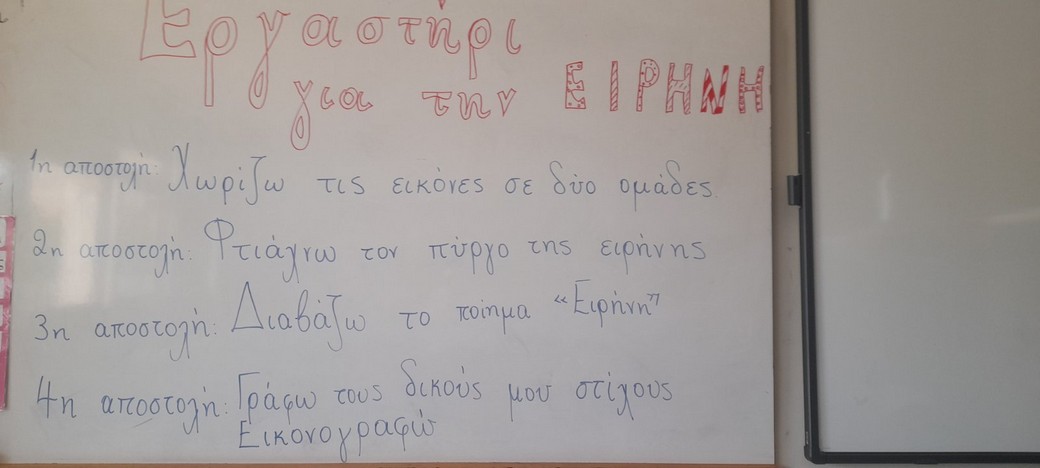 Εργαστήρι
για την ΕΙΡΗΝΗ
1η αποστολή: Χωρίζω τις εικόνες σε δύο ομάδες.
2η αποστολή: Φτιάχνω τον πύργο της ειρήνης
3η αποστολή: Διαβάζω το ποίημα “Ειρήνη”
4η αποστολή: Γράφω τους δικούς μου στίχους
Εικονογραφώ